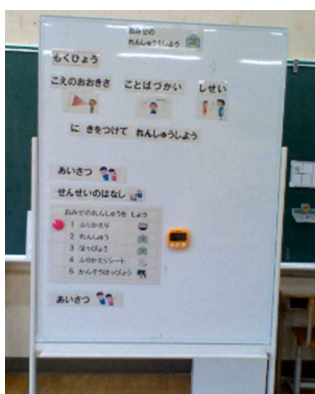 おみせの
れんしゅうをしよう
もくひょう
こえのおおきさ ことばづかい しせい
に きをつけて れんしゅうしよう
あいさつ
せんせいのはなし
おみせのれんしゅうを しよう
1 ふりかえり
2 れんしゅう
3 はっぴょう
4 ふりかえりシート
5 かんそうはっぴょう
あいさつ